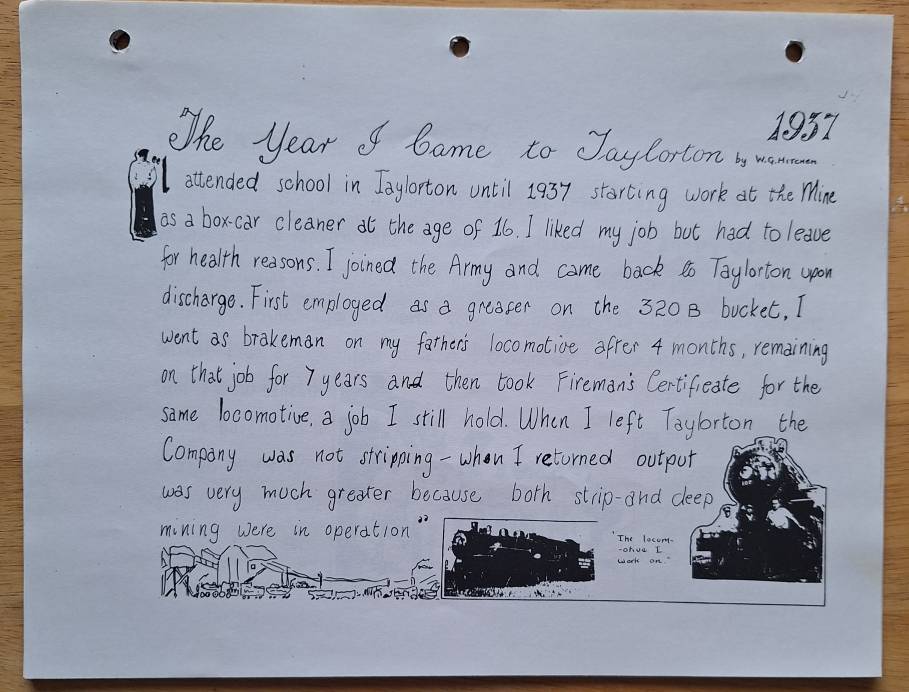 1937
The Year I Came to Taylorton by W.G. HITCHEN
"I attended school in Taylorton until 1937 starting work at the Mine
as a box-car cleaner at the age of 16. I liked my job but had to leave
for health reasons. I joined the Army and came back to Taylorton upon
discharge. First employed as a greaser on the 320 B bucket, I
went as brakeman on my father's locomotive after 4 months, remaining
on that job for 7 years and then took Fireman's Certificate for the
same locomotive, a job I still hold. When I left Taylorton the
Company was not stripping - when I returned output
was very much greater because both strip-and deep
mining were in operation"
"The locom-
-otive I
work on."